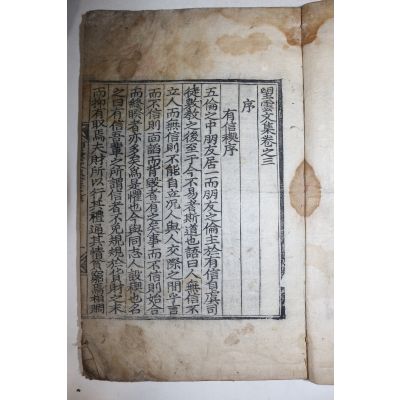 望雲文集卷之三
序
有信稧序
五倫之中朋友居一而朋友之倫主於有信自虞司
徒敷敎之後至于今不易者斯道也語曰人無信不
立人而無信則不能自立況人與人交際之間乎言
而不信則面諂而背毁者有之矣事而不信則始合
而終睽者亦多矣爲是懼也今與同志人設稧也名
之曰有信吾輩之所謂信者不免規規於貨財之末
而抑有取焉夫財所以行其禮通其情於窮爲相賙